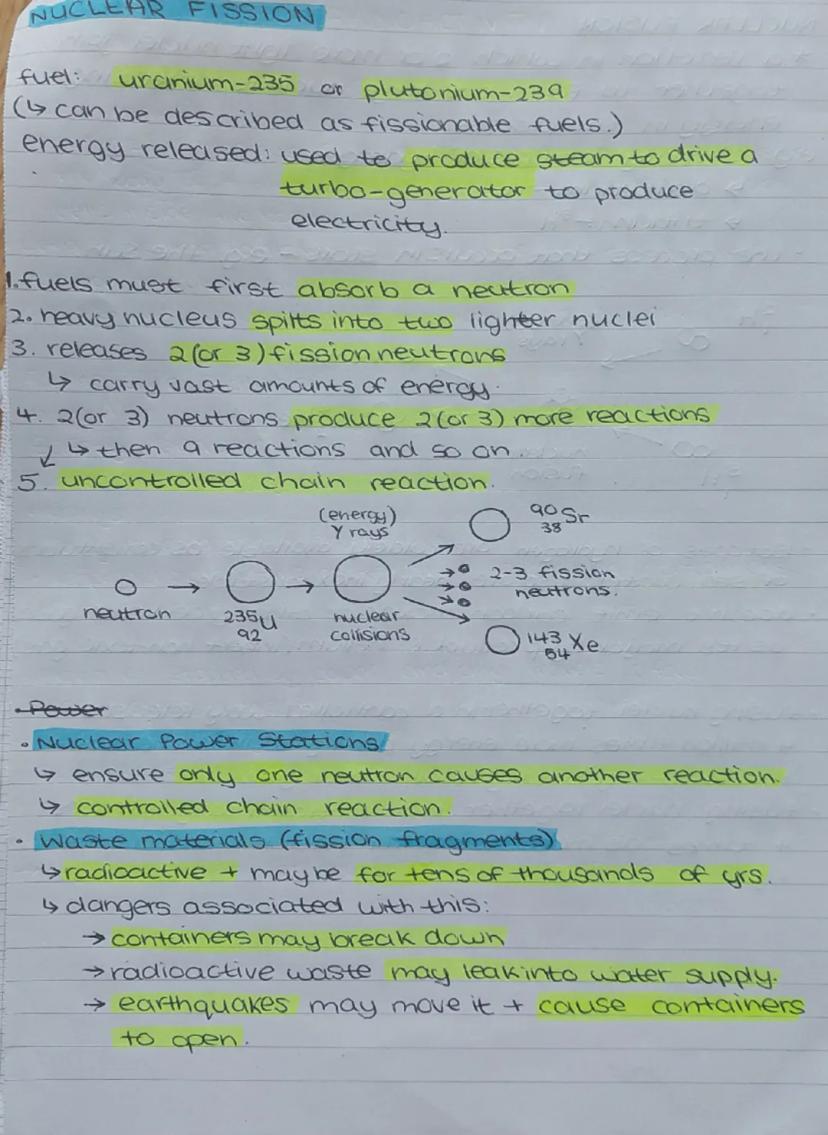 NUCLEAR FISSION
fuel: uranium-235 or plutonium-239
(↳ can be described as fissionable fuels.)
energy released: used to produce steam to drive a
turbo-generator to produce
electricity.
1. fuels must first absorb a neutron
2. heavy nucleus spilts into two lighter nuclei
3. releases 2 (or 3) fission neutrons
↳ carry vast amounts of energy.
4. 2(or 3) neutrons produce 2 (or 3) more reactions
↙ ↳ then 9 reactions and so on.
5. uncontrolled chain reaction.
(energy)
γ rays
90 Sr
38
2-3 fission
neutrons.
neutron
235 U
92
nuclear
collisions
143 Xe
54
• Power
• Nuclear Power Stations
↳ ensure only one neutron causes another reaction.
↳ controlled chain reaction.
• Waste materials (fission fragments)
↳ radioactive + may be for tens of thousands of yrs.
↳ dangers associated with this:
→ containers may break down
→ radioactive waste may leak into water supply.
→ earthquakes may move it + cause containers
to open.